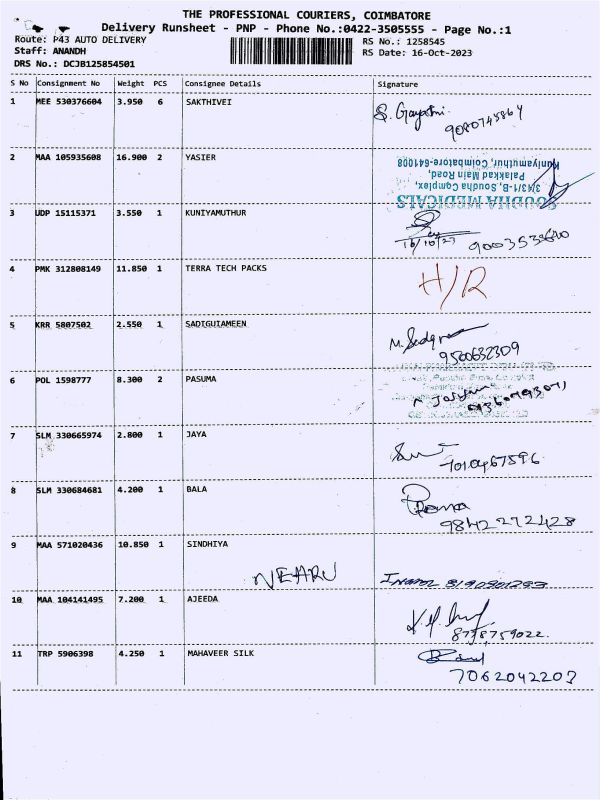 THE PROFESSIONAL COURIERS, COIMBATORE
Delivery Runsheet - PNP - Phone No.:0422-3505555 - Page No.:1
Route: P43 AUTO DELIVERY
RS No.: 1258545
Staff: ANANDH
RS Date: 16-Oct-2023
DRS No.: DCJB125854501
S No Consignment No Weight PCS Consignee Details Signature
1 MEE 530376604 3.950 6 SAKTHIVEI
S. Gayatri.
9080745864
2 MAA 105935608 16.900 2 YASIER
SOUDHA MEDICALS
3/43/1-B, Soudha Complex,
Palakkad Main Road,
Kuniyamuthur, Coimbatore-641008
3 UDP 15115371 3.550 1 KUNIYAMUTHUR
16/10/23 9003538690
4 PMK 312808149 11.850 1 TERRA TECH PACKS
H/R
5 KRR 5807502 2.550 1 SADIGUIAMEEN
9500632309
6 POL 1598777 8.300 2 PASUMA
7 SLM 330665974 2.800 1 JAYA
7010467596
8 SLM 330684681 4.200 1 BALA
9842272428
9 MAA 571020436 10.850 1 SINDHIYA
NEHRU
10 MAA 104141495 7.200 1 AJEEDA
8778759022.
11 TRP 5906398 4.250 1 MAHAVEER SILK
7062042207